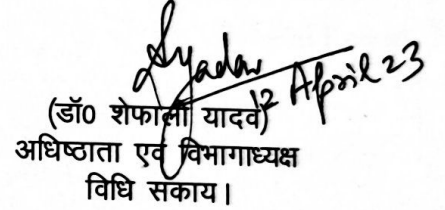 Syadav
12 April 23
(डॉ0 शेफाली यादव)
अधिष्ठाता एवं विभागाध्यक्ष
विधि सकाय।